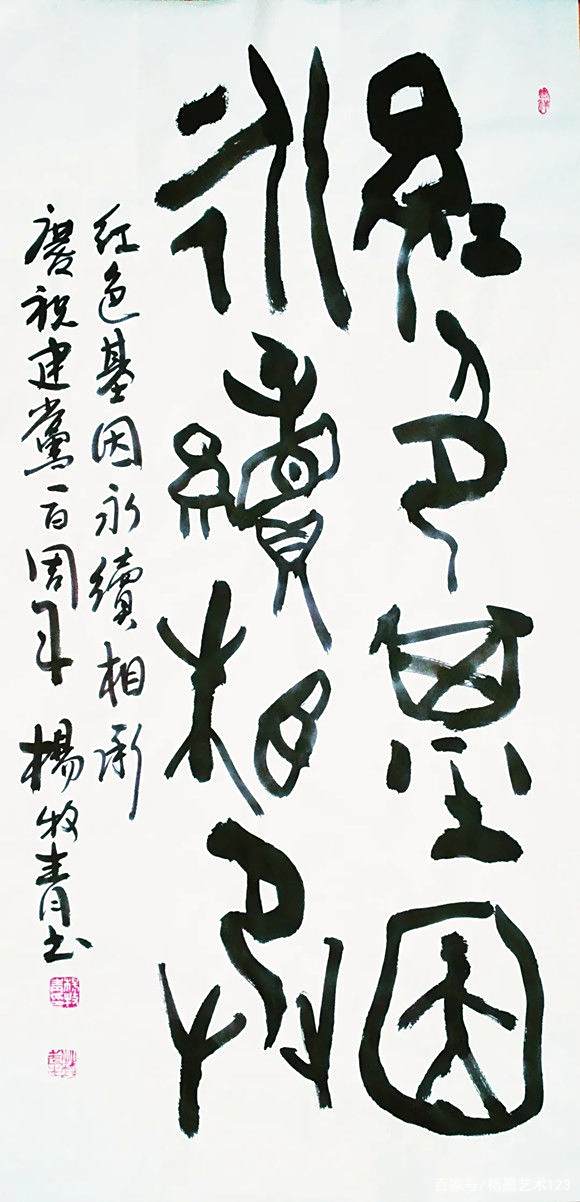 紅色基因
永續相承
红色基因永續相承
慶祝建黨一百周年 楊牧青书
百家号/杨墨艺术123